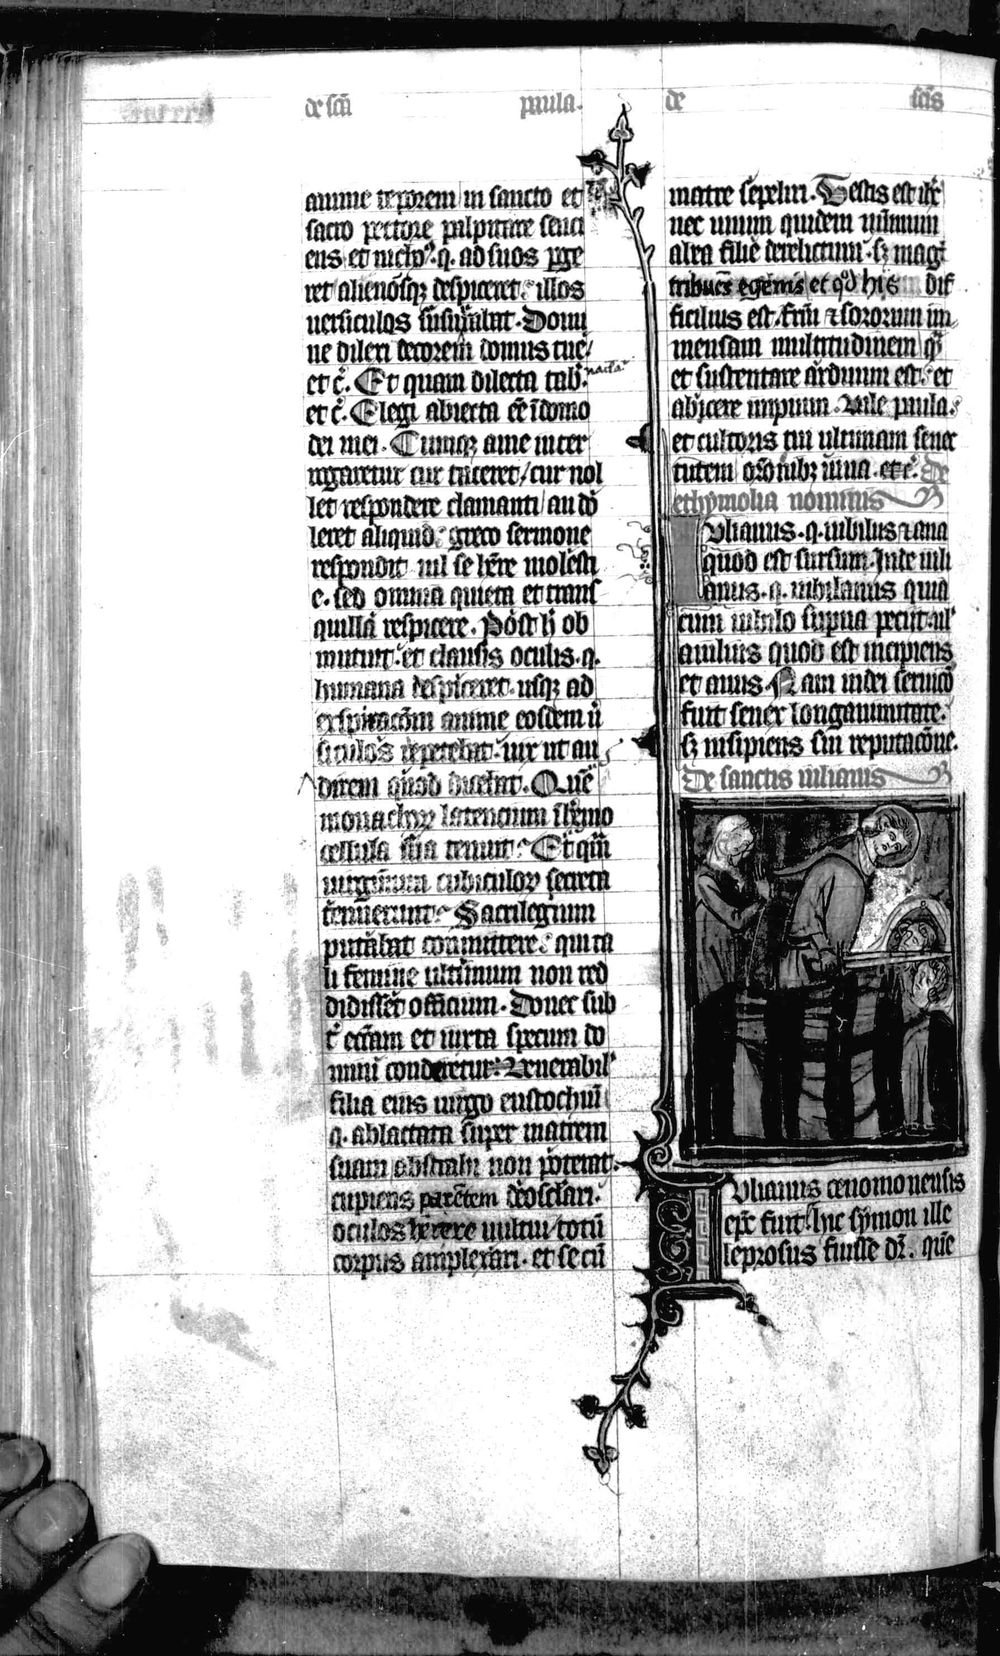 de scā paula. de scīs
anime teporem in sancto et
sacro pectore palpitare senci
ens et nichoꝰ. q. ad suos ꝑge
ret alienosqꝫ despiceret. illos
uersiculos susurrabat. Domi
ne dilexi decorem domus tue/
et c̄. Et quam dilecta tab̄.
nacła
et c̄. Elegi abiecta eē ī domo
dei mei. Cumqꝫ a me inter
rogaretur cur taceret/ cur nol
let respondere clamanti/ an do
leret aliquid. greco sermone
respondit nil se hr̄e molesti
e. sed omnia quieta et tran
quilla respicere. Post h̄ ob
mutuit. et clausis oculis. q.
humana despiceret. usqꝫ ad
exspiracōm anime eosdem ū
siculos repetebat. uix ut au
direm quod dicebat. Quē
monachoꝝ latencium ī h̄emo
cellula sua tenuit. Et quā
uirginum cubiculoꝝ secreta
tenuerunt. Sacrilegium
putabat committere. qui ta
li femine ultimum non red
didisset officium. Donec sub
t̄ ecc̄am et iuxta specum do
mini conderetur. Uenerabil̓
filia eius uirgo eustochiū
q. ablactata super matrem
suam abstrahi non poterat.
cupiens parentem deosclāri.
oculos herere uultui totū
corpus amplexari. et se cū
matre sepeliri. Testis est ih̄c
nec unum quidem nūmum
ab ea filie derelictum. sꝫ magꝭ
tribues egenis et qd̓ his dif
ficilius est. fr̄m et sororum im
mensam multitudinem q̄
et sustentare arduum est. et
abicere impium. Uale paula.
et cultoris tui ultimam senec
tutem oronibꝫ iuua. et c̄. De
ethymolia nominis
Iulianus. q. iubilus et ana
quod est sursum. Inde iuli
anus. q. iubilanus quia
cum iubilo supna petiit. ul̓
a iulius quod est incipiens
et anus. Nam in dei seruicō
fuit senex longanimitate.
sꝫ insipiens sui reputacōne.
De sanctis iulianis
Iulianus cenomonensis
ep̄c fuit. hic symon ille
leprosus fuisse dr̄. quē